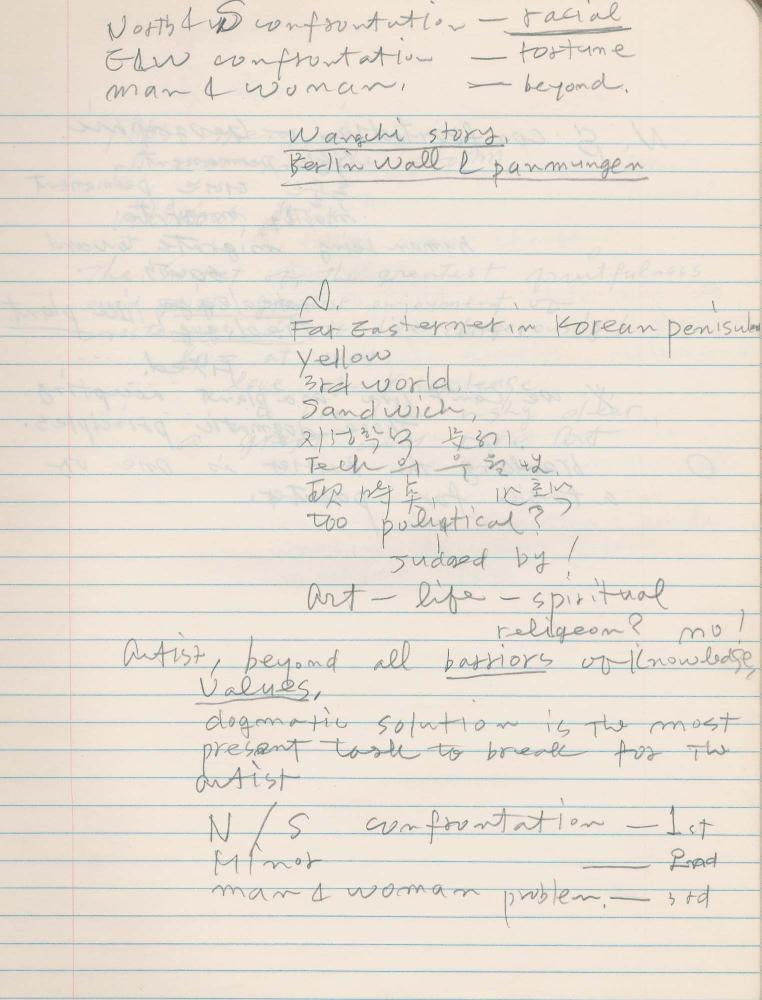 North & S confrontation — racial
E&W confrontation — fortune
man & woman. — beyond.
Wangchi story,
Berlin wall & panmungen
N.
Far Easterner in Korean penisula
Yellow
3rd world.
Sandwich,
Tech 의 우월성
too poliptical?
Judged by!
art — life — spiritual
religeon? no!
Artist, beyond all barriors of Knowledge,
Values,
dogmatic solution is The most
present task to break for The
artist
N/S confrontation — 1st
Minor — 2nd
man & woman problem. — 3rd